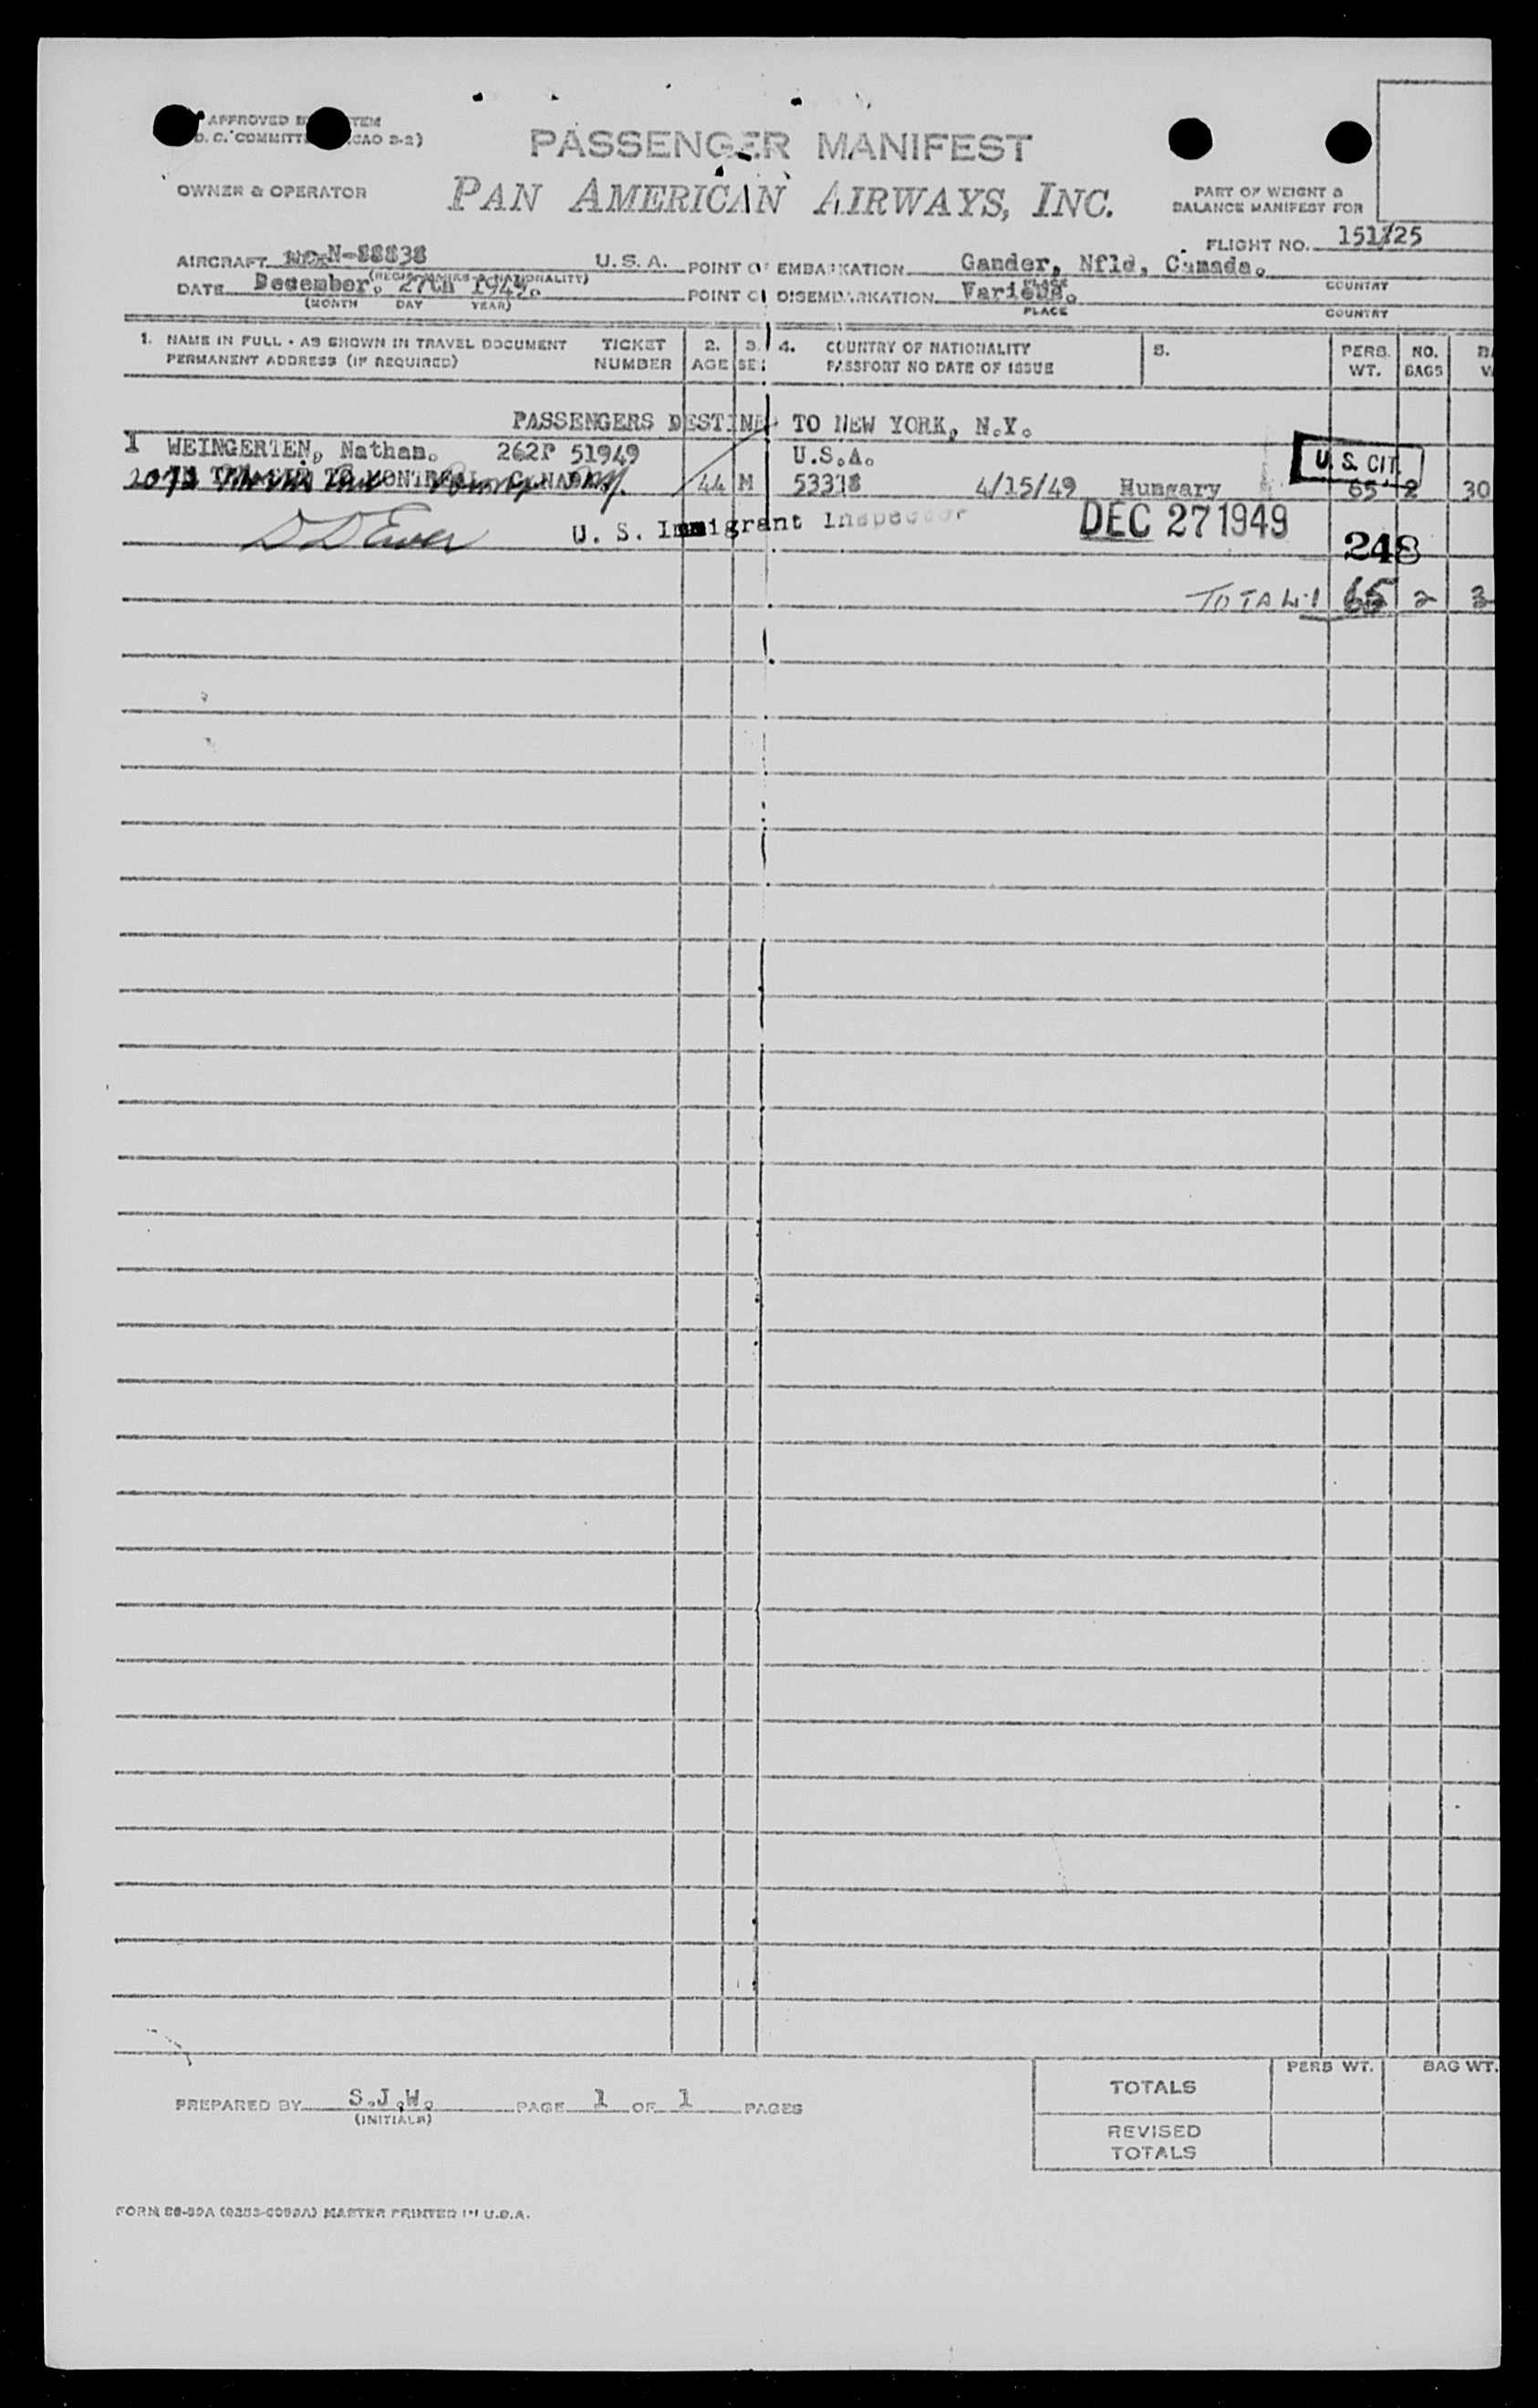 APPROVED
D. C. COMMITT CAO 2-2)
PASSENGER MANIFEST
OWNER & OPERATOR
PAN AMERICAN AIRWAYS, INC.
PART OF WEIGHT &
BALANCE MANIFEST FOR
FLIGHT NO. 151/25
AIRCRAFT N-88838 U. S. A. POINT OF EMBARKATION Gander, Nfld, Canada.
(REGIS. MARKS & NATIONALITY) PLACE COUNTRY
DATE December. 27th 1949. POINT OF DISEMBARKATION Various.
(MONTH DAY YEAR) PLACE COUNTRY
1. NAME IN FULL - AS SHOWN IN TRAVEL DOCUMENT TICKET 2. 3. 4. COUNTRY OF NATIONALITY 5. PERS. NO.
PERMANENT ADDRESS (IF REQUIRED) NUMBER AGE SE PASSPORT NO DATE OF ISSUE WT. BAGS
PASSENGERS DESTINED TO NEW YORK, N.Y.
1 WEINGERTEN, Nathan. 262P 51949 U.S.A. U. S. CIT.
IN TRANSIT TO MONTREAL, CANADA 44 M 4/15/49 Hungary 65 2 30
U. S. Immigrant Inspector DEC 27 1949 248
TOTAL: 1 65 2 3
PREPARED BY S.J.W. PAGE 1 OF 1 PAGES
(INITIALS)
PERS WT. BAG WT.
TOTALS
REVISED
TOTALS
MASTER PRINTED IN U.S.A.